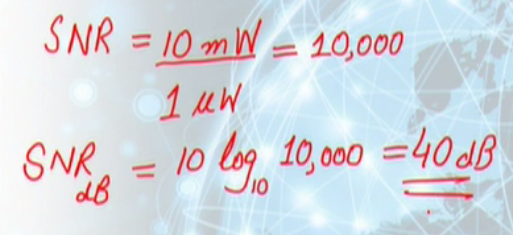 SNR = 10 mW = 10,000
1 μW
SNR dB = 10 log10 10,000 = 40 dB